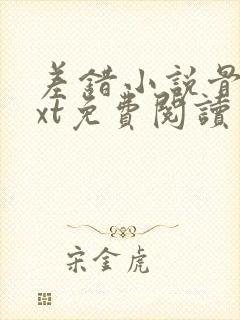 差錯小說最
xt免費閱讀
宋金虎